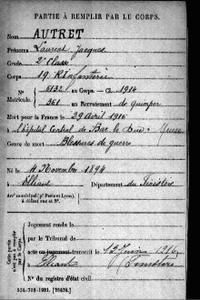 PARTIE À REMPLIR PAR LE CORPS.
Nom AUTRET
Prénoms Laurent Jacques
Grade 2e Classe
Corps 19 R. d'Infanterie
N° 6132 au Corps. — Cl. 1914
Matricule. 361 au Recrutement de Quimper
Mort pour la France le 29 Avril 1915
à l'hôpital Central de Bar le Duc Meuse
Genre de mort Blessures de guerre
Né le 11 Novembre 1894
à Elliant Département du Finistère
Arr' municipal (pr Paris et Lyon), à défaut rue et N°.
Jugement rendu le
par le Tribunal de
acte ou jugement transcrit le 12 Juin
à Elliant (Finistère)
N° du registre d'état civil